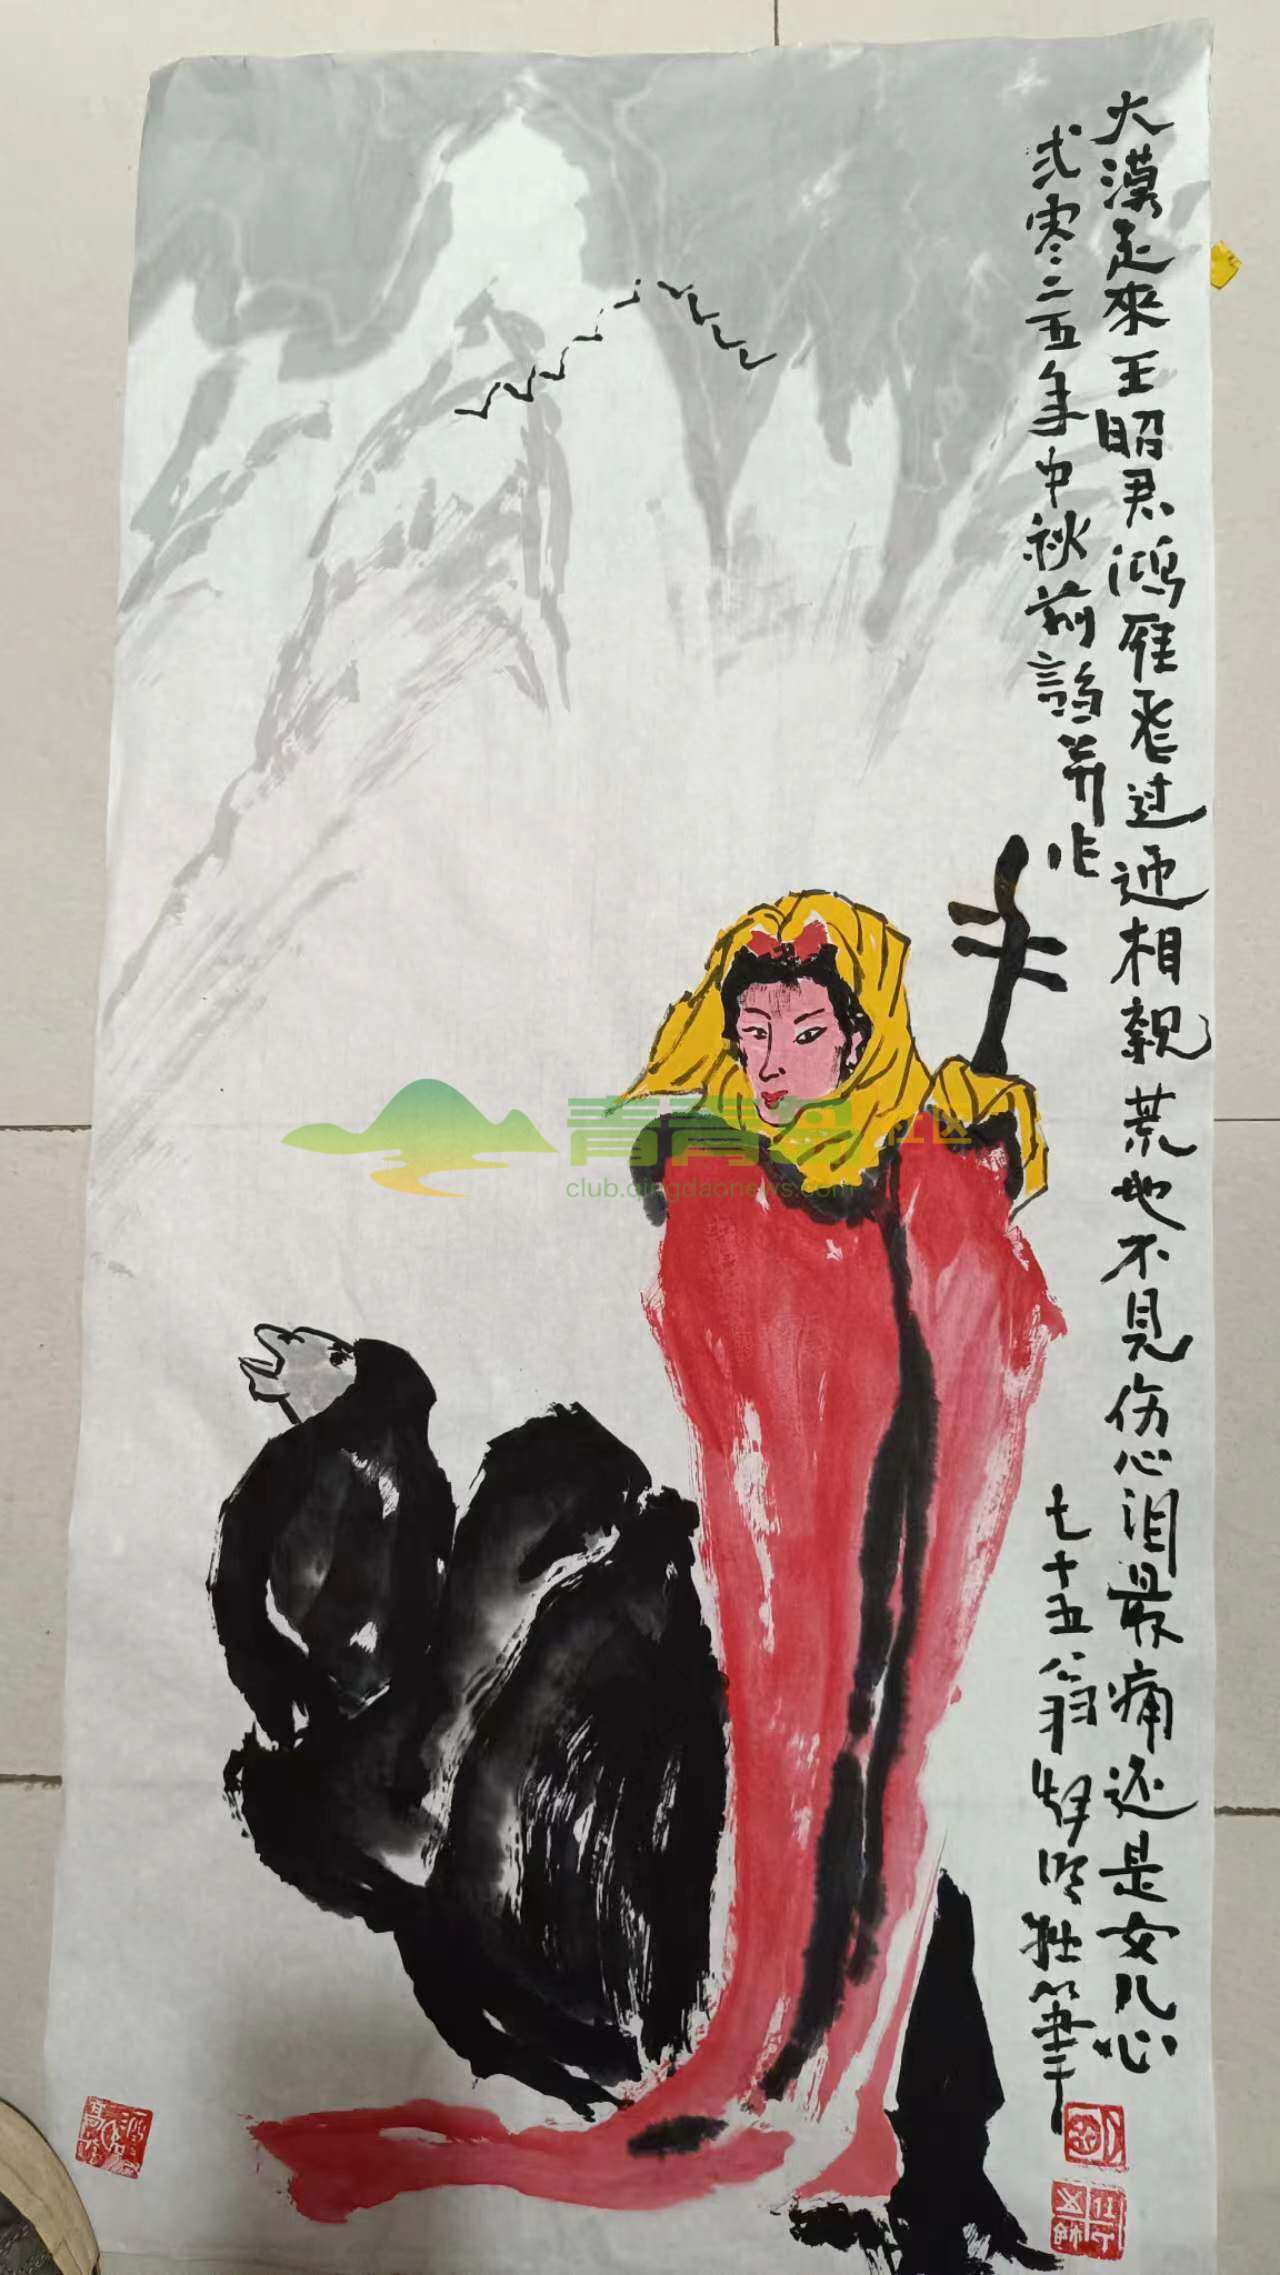 大漠走來王昭君鸿雁飛过迊相親荒地不見伤心泪最痛还是女儿心
弍零二五年中秋前謅并作
七十五公翁 拙筆
青青岛社区
club.qingdaonews.com